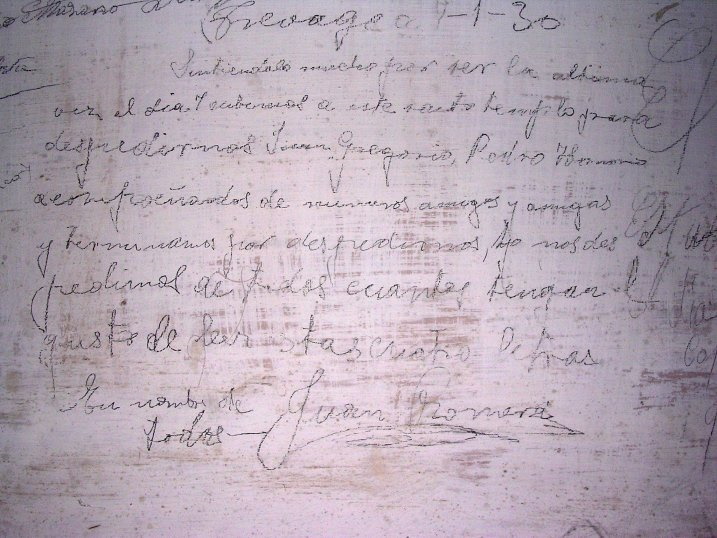 Trevago a 7-1-30
Sintiendolo mucho por ser la ultima
vez el dia 7 subimos a este santo templo para
despedirnos Juan, Gregorio, Pedro Honorio
acompañados de numeros amigos y amigas
y terminamos por despedirnos, y nos des
pedimos de todos cuantos tengan el
gusto de leer stas cuatro letras
En nombre de Juan Romera
todos